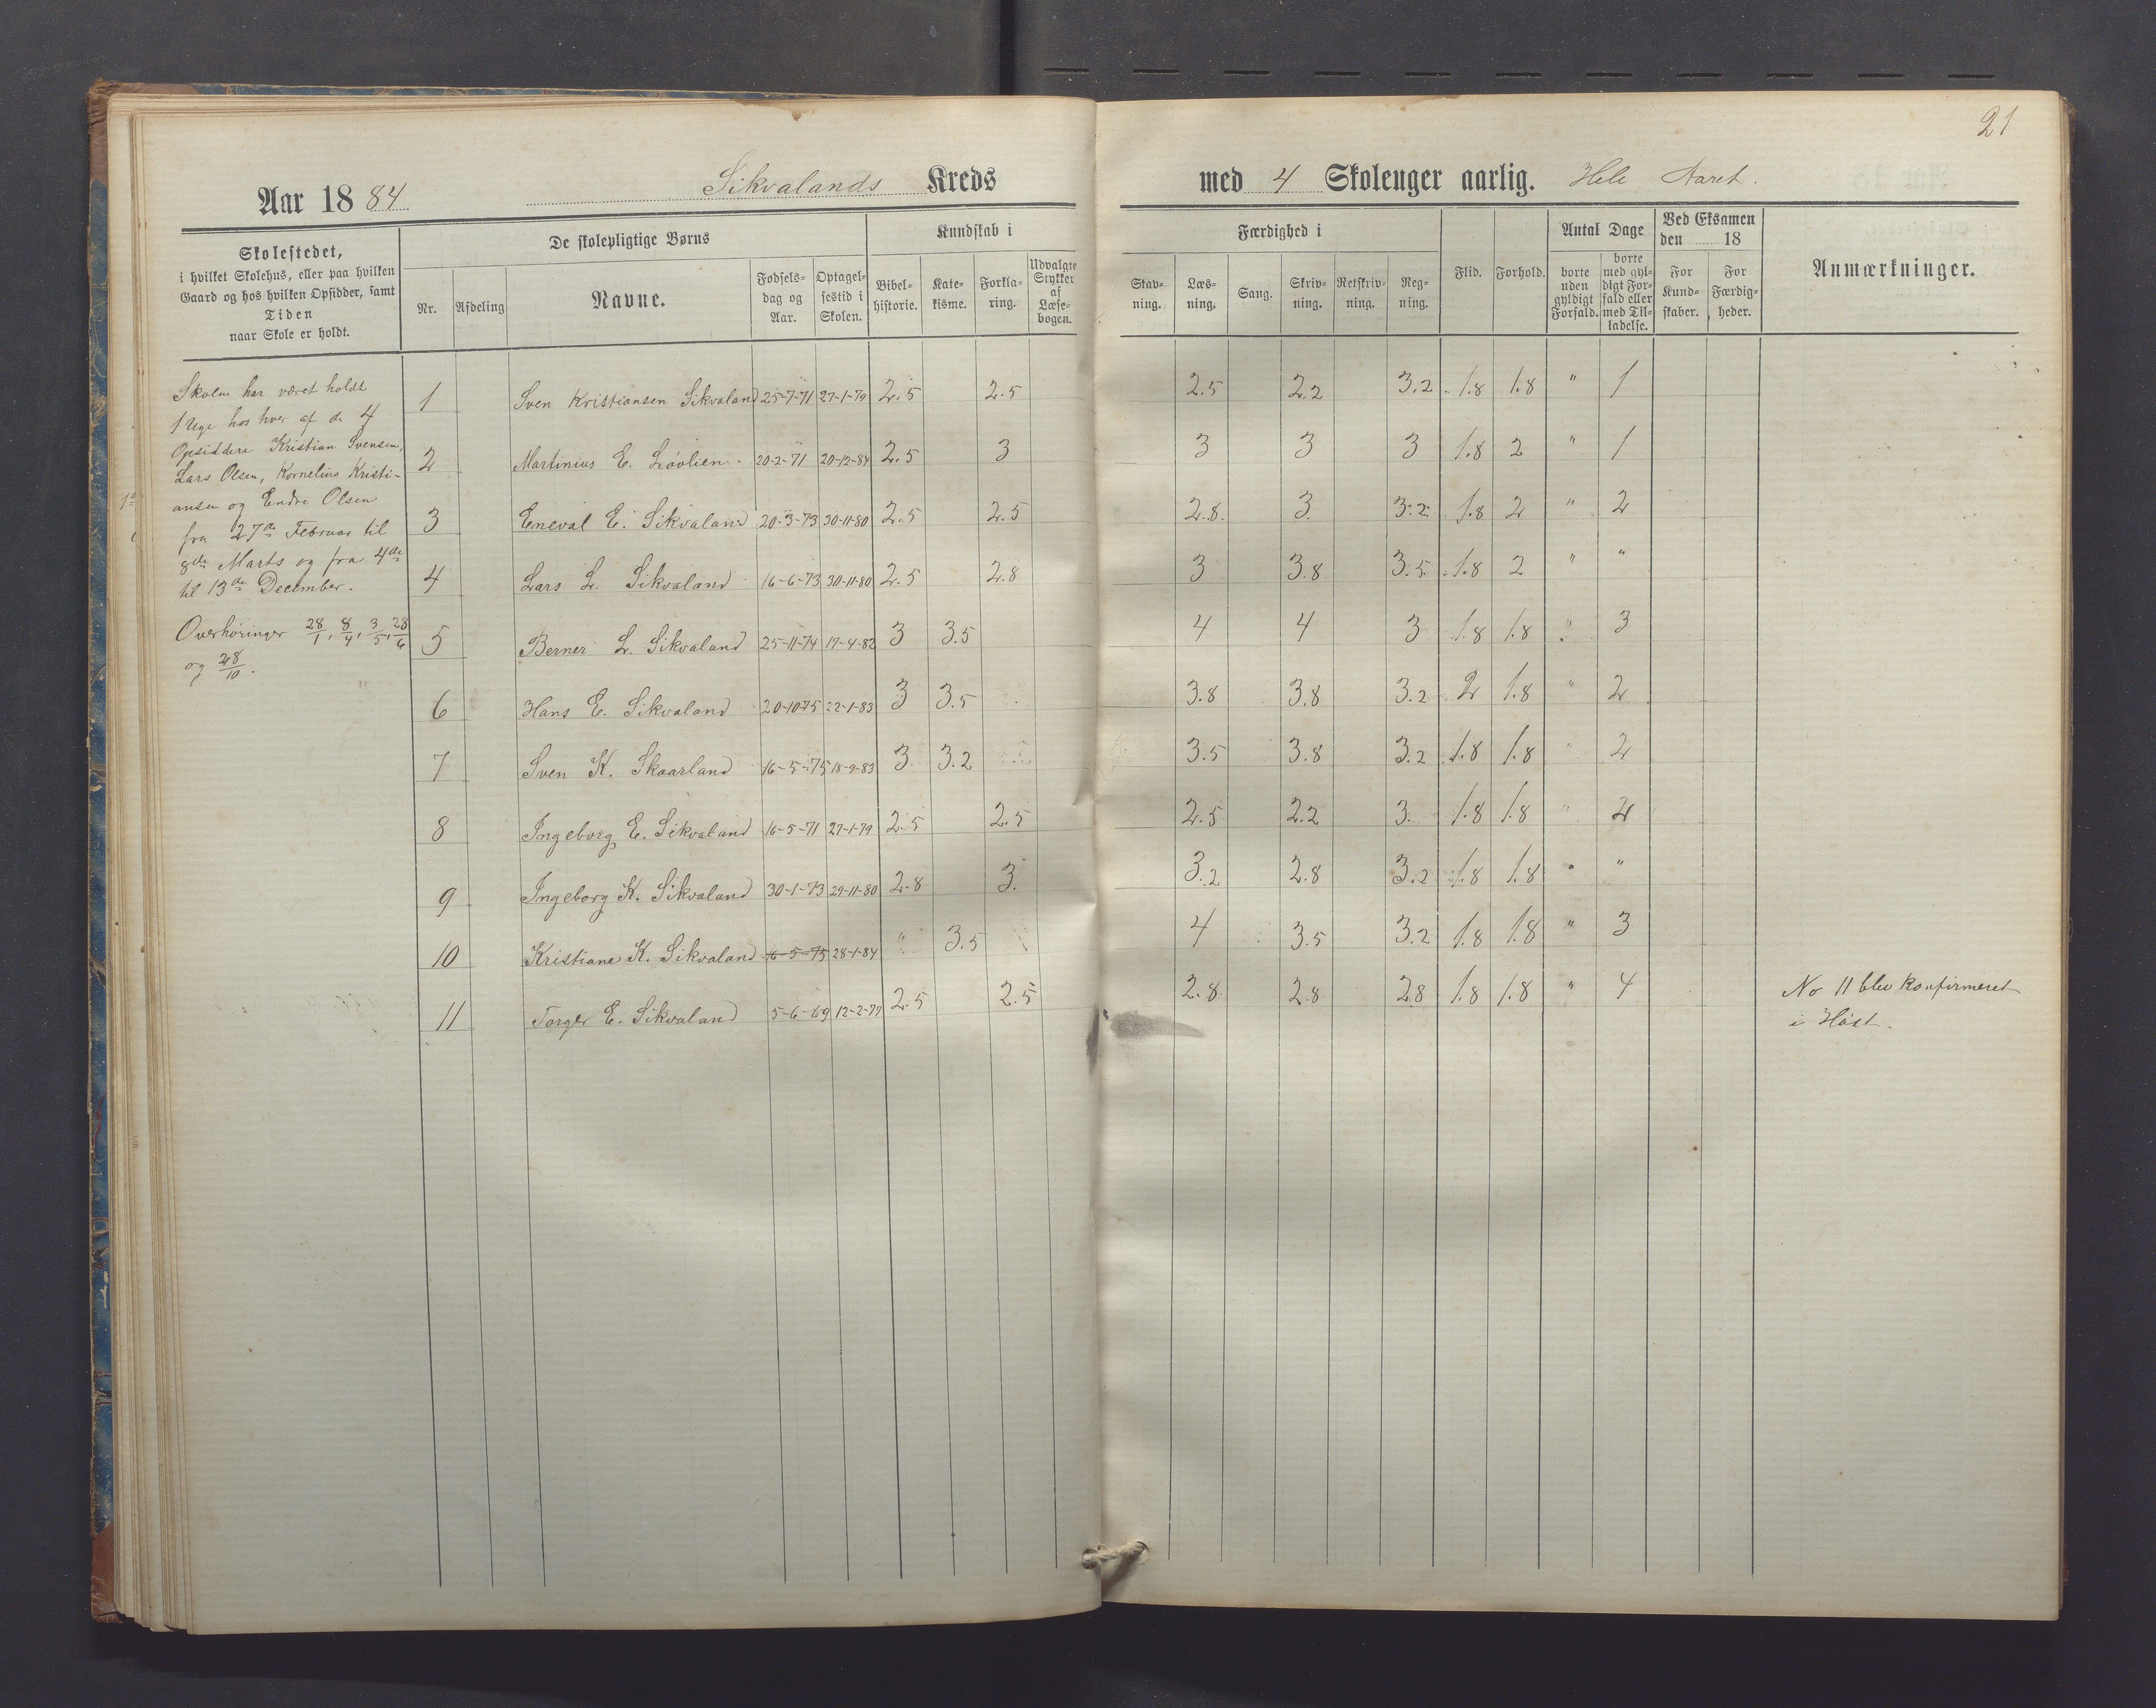 21
Aar 1884 Sikvalands Kreds med 4 Skoleuger aarlig. Hele Aaret.
Skolestedet,
i hvilket Skolehus, eller paa hvilken
Gaard og hos hvilken Opsidder, samt
Tiden
naar Skole er holdt.
De skolepligtige Børns
Nr. Afdeling Navne. Fødsels-dag og Aar. Optagel-sestid i Skolen.
Kundskab i
Bibel-historie. Kate-kisme. Forkla-ring. Udvalgte Stykker af Læse-bogen.
Færdighed i
Stav-ning. Læs-ning. Sang. Skriv-ning. Retskriv-ning. Reg-ning.
Flid. Forhold.
Antal Dage
borte uden gyldigt Forfald. borte med gyl-digt For-fald eller med Til-ladelse.
Ved Eksamen
den 18
For Kund-skaber. For Færdig-heder.
Anmærkninger.
Skolen har været holdt
1 Uge hos hver af de 4
Opsiddere Kristian Svensen,
Lars Olsen, Kornelius Kristi-
ansen og Endre Olsen
fra 27de Februar til
8de Marts og fra 4de
til 13de December.
Overhöringer 28/1, 8/4, 3/5, 28/6
og 28/10.
1 Sven Kristiansen Sikvaland 25-7-71 27-1-79 2.5 2.5 2.5 2.2 3.2 1.8 1.8 " 1
2 Martinius E. Lövlien 20-2-71 20-12-84 2.5 3 3 3 3 1.8 2 " 1
3 Eneval E. Sikvaland 20-3-73 30-11-80 2.5 2.5 2.8 3 3.2 1.8 2 " 2
4 Lars L. Sikvaland 16-6-73 30-11-80 2.5 2.8 3 3.8 3.5 1.8 2 " "
5 Berner L. Sikvaland 25-11-74 17-4-82 3 3.5 4 4 3 1.8 1.8 " 3
6 Hans E. Sikvaland 20-10-75 22-1-83 3 3.5 3.8 3.8 3.2 2 1.8 " 2
7 Sven K. Skaarland 16-5-75 18-9-83 3 3.2 3.5 3.8 3.2 1.8 1.8 " 2
8 Ingeborg E. Sikvaland 16-5-71 27-1-79 2.5 2.5 2.5 2.2 3 1.8 1.8 " 2
9 Ingeborg K. Sikvaland 30-1-73 29-11-80 2.8 3 3.2 2.8 3.2 1.8 1.8 " "
10 Kristiane K. Sikvaland 16-5-75 28-1-84 " 3.5 4 3.5 3.2 1.8 1.8 " 3
11 Torger E. Sikvaland 5-6-69 12-2-77 2.5 2.5 2.8 2.8 2.8 1.8 1.8 " 4 No 11 blev konfirmeret
i Höst.